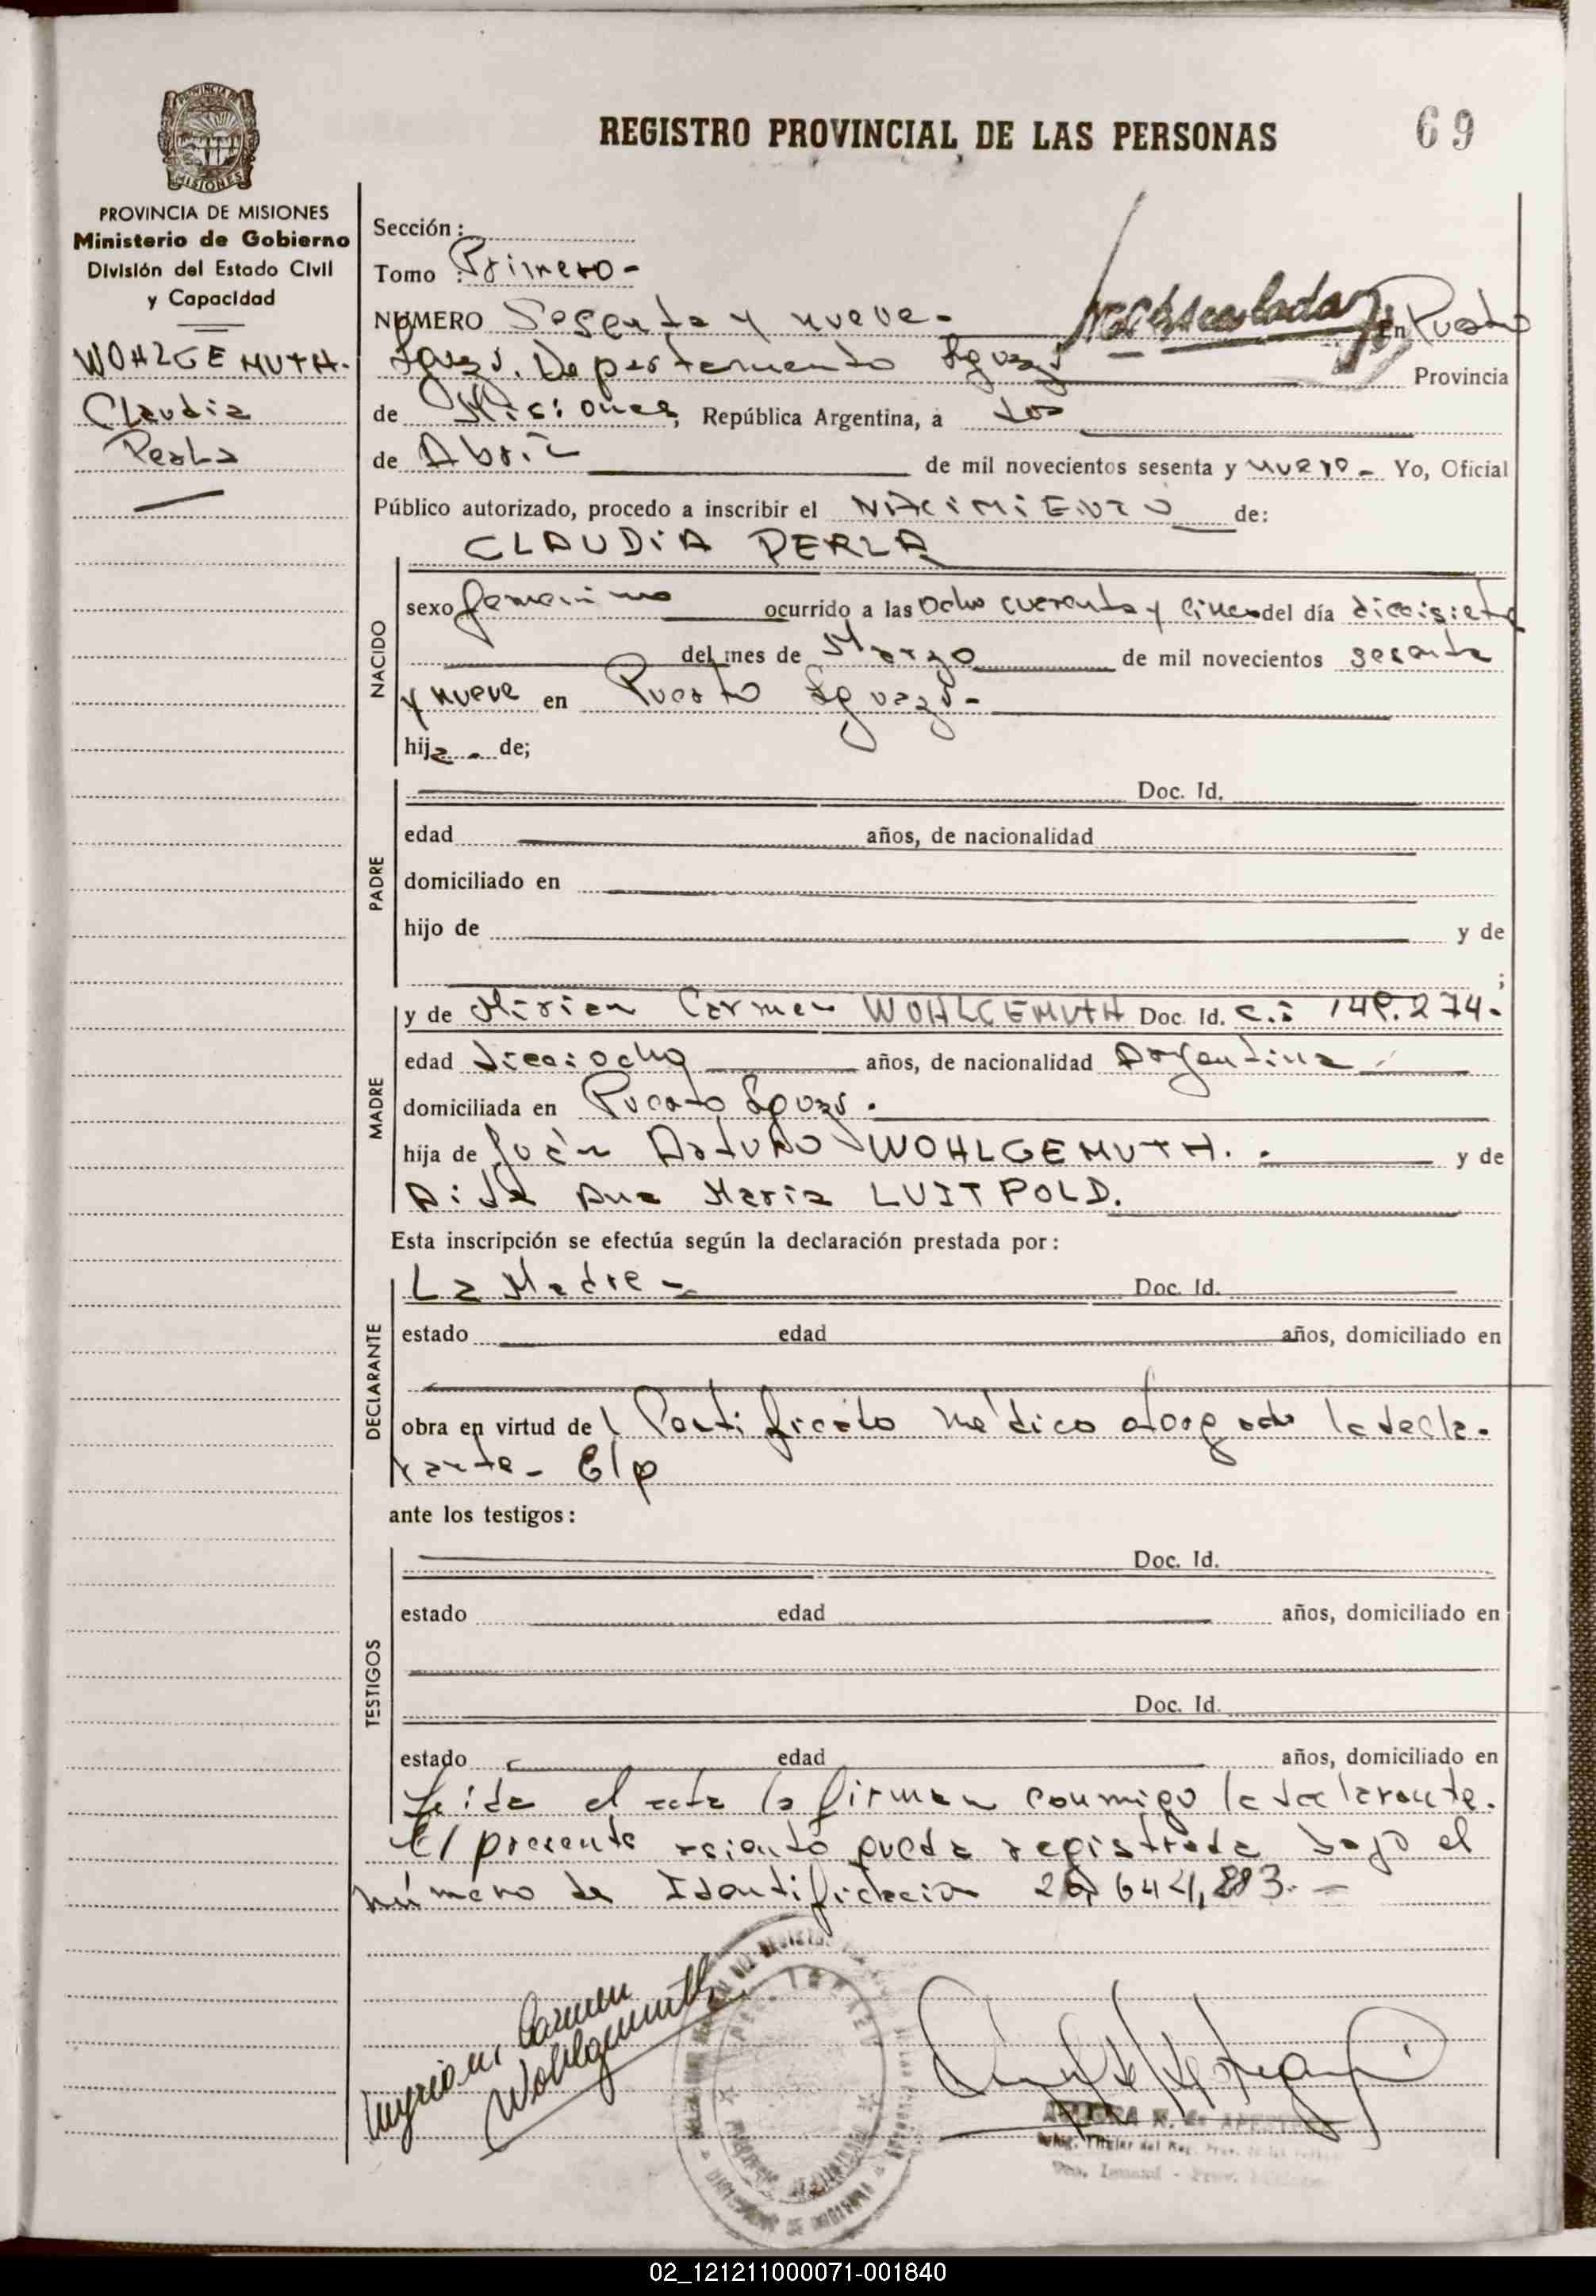 REGISTRO PROVINCIAL DE LAS PERSONAS
69
PROVINCIA DE MISIONES
Ministerio de Gobierno
División del Estado Civil
y Capacidad
WOHLGEMUTH.
Claudia
Perla
Sección:
Tomo : Primero -
NUMERO Sesenta y nueve - En Puerto
Iguazú. Departamento Iguazú Provincia
de Misiones, República Argentina, a dos
de Abril de mil novecientos sesenta y nueve - Yo, Oficial
Público autorizado, procedo a inscribir el NACIMIENTO de:
CLAUDIA PERLA
NACIDO
sexo femenino ocurrido a las ocho cuarenta y cinco del día diecisiete
del mes de Marzo de mil novecientos sesenta
y nueve en Puerto Iguazú -
hija. de;
PADRE
Doc. Id.
edad años, de nacionalidad
domiciliado en
hijo de y de
;
MADRE
y de Mirian Carmen WOHLGEMUTH Doc. Id. C.I 149.274.
edad dieciocho años, de nacionalidad Argentina
domiciliada en Puerto Iguazú.
hija de Juan Arturo WOHLGEMUTH. y de
Aida Ana Maria LUITPOLD.
Esta inscripción se efectúa según la declaración prestada por:
DECLARANTE
La Madre - Doc. Id.
estado edad años, domiciliado en
obra en virtud del Certificado médico otorgado la decla-
rante - E/p
ante los testigos:
TESTIGOS
Doc. Id.
estado edad años, domiciliado en
Doc. Id.
estado edad años, domiciliado en
Leida el acta la firman conmigo la declarante.
El presente asiento queda registrada bajo el
número de Identificacion 20,644,883. -
Myriam Carmen
Wohlgemuth
02_121211000071-001840